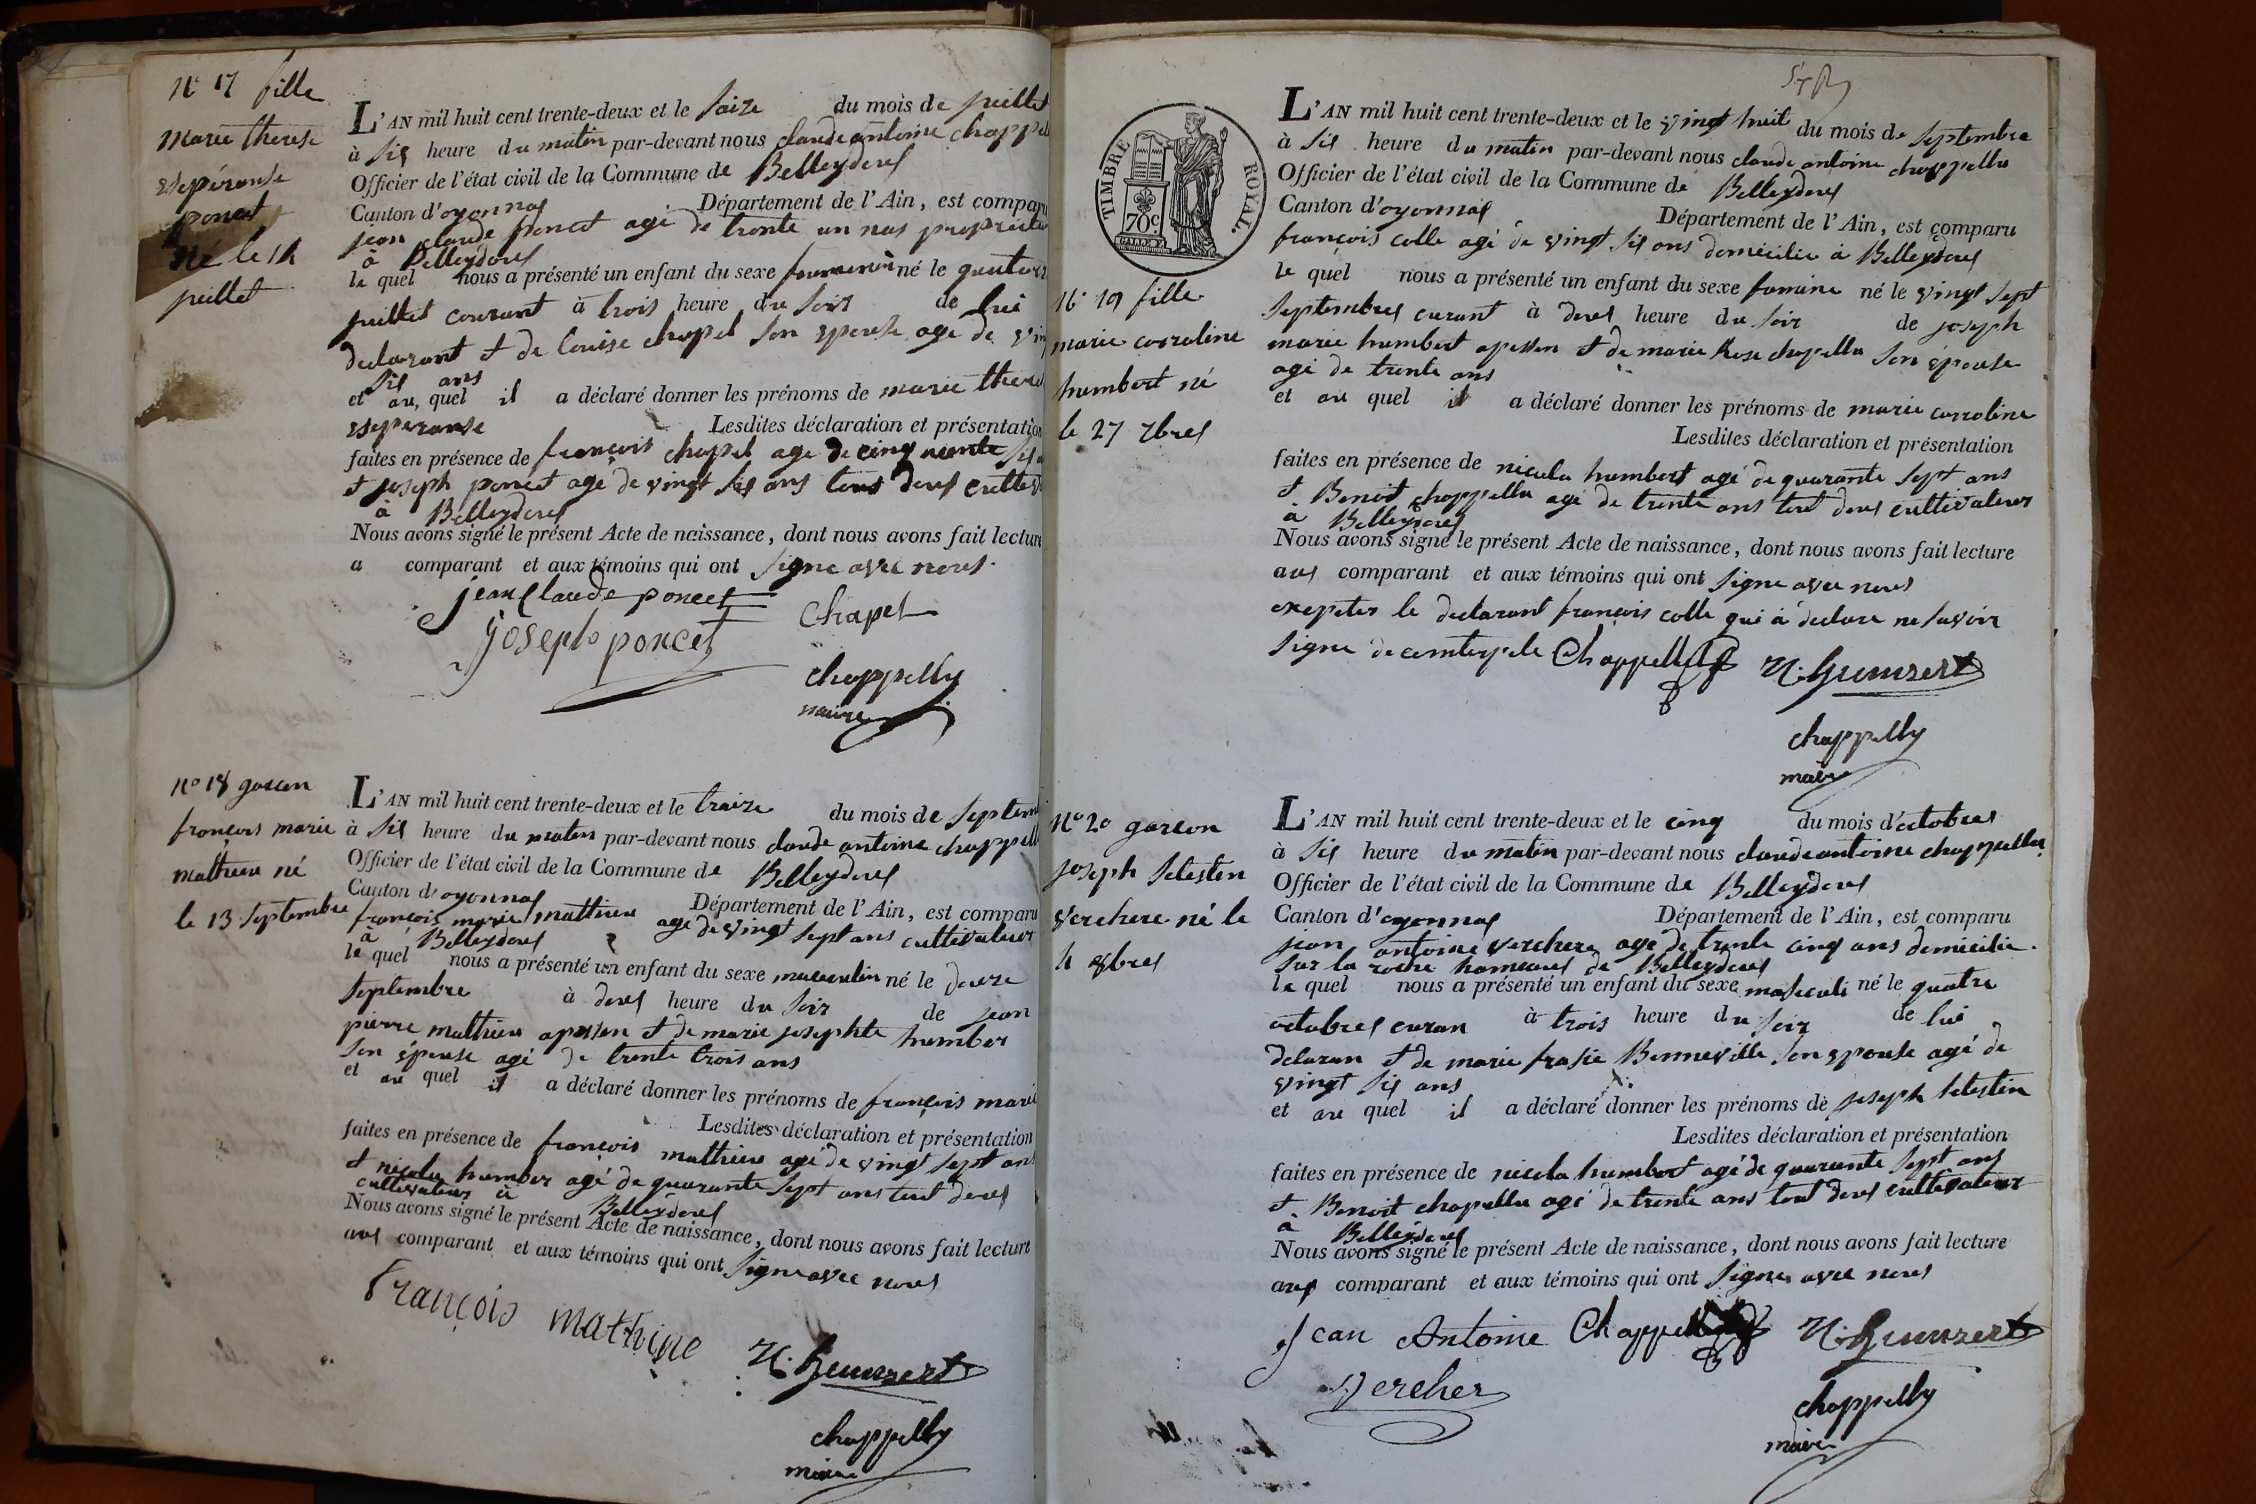 N° 17 fille
marie therese
esepéranse
poncet
né le 14
juillet
L'AN mil huit cent trente-deux et le saize du mois de juillet
à six heure du matin par-devant nous claude antoine chappel
Officier de l'état civil de la Commune de Belleydoux
Canton d'oyonnax Département de l'Ain, est comparu
jean claude poncet agé de trente un nas propriéte
à Belleydoux
le quel nous a présenté un enfant du sexe né le quatorz
juillet courant à trois heure du soir de lui
declarant et de Louise chapel son epouse age de vin
six ans
et au quel il a déclaré donner les prénoms de marie there
esperanse Lesdites déclaration et présentation
faites en présence de françois chapel age de cinq six
et joseph poncet agé de vingt six ans tous deux cultiv
à Belleydoux
Nous avons signé le présent Acte de naissance, dont nous avons fait lecture
a comparant et aux témoins qui ont signe avec nous.
jean Claude poncet
Chapel
joseph poncet
chappelluz
maire
N° 18 garson
françois marie
mathieu né
le 13 septembre
L'AN mil huit cent trente-deux et le traize du mois de septem
à six heure du matin par-devant nous claude antoine chappell
Officier de l'état civil de la Commune de Belleydoux
Canton d'oyonnax Département de l'Ain, est comparu
françois marie mathieu agé de vingt sept ans cultivateur
à Belleydoux
le quel nous a présenté un enfant du sexe masculin né le douze
septembre à deux heure du soir de jean
pierre mathieu apsson et de marie josephte humber
son épouse agé de trente trois ans
et au quel il a déclaré donner les prénoms de françois marie
Lesdites déclaration et présentation
faites en présence de françois mathieu agé de vingt sept ans
et nicolas humber agé de quarante sept ans tout deux
cultivateur à Belleydoux
Nous avons signé le présent Acte de naissance, dont nous avons fait lecture
aux comparant et aux témoins qui ont signe avec nous
François mathieu
N. humbert
chappelluz
maire
TIMBRE ROYAL.
70 c.
N° 19 fille
marie carroline
humbert né
le 27 7bres
L'AN mil huit cent trente-deux et le vingt huit du mois de septembre
à six heure du matin par-devant nous claude antoine chappelluz
Officier de l'état civil de la Commune de Belleydoux
Canton d'oyonnax Département de l'Ain, est comparu
françois colle agé de vingt six ans domicilie à Belleydoux
le quel nous a présenté un enfant du sexe famine né le vingt sept
septembres curant à deux heure du soir de joseph
marie humbert apsson et de marie Rose chapellu son épouse
agé de trente ans
et au quel il a déclaré donner les prénoms de marie carroline
Lesdites déclaration et présentation
faites en présence de nicola humbert agé de quarante sept ans
et Benoit chappellu agé de trente ans tout deux cultivateur
à Belleydoux
Nous avons signé le présent Acte de naissance, dont nous avons fait lecture
aux comparant et aux témoins qui ont signe avec nous
exepter le declarant françois colle qui à declare ne savoir
signe de Chappelluz N. humbert
chappelluz
maire
N° 20 garson
joseph selestin
verchere né le
4 8bres
L'AN mil huit cent trente-deux et le cinq du mois d'octobres
à six heure du matin par-devant nous claude antoine chappellu
Officier de l'état civil de la Commune de Belleydoux
Canton d'oyonnax Département de l'Ain, est comparu
jean antoine verchere age de trente cinq ans domicilie
sur la roche homeaux de Belleydoux
le quel nous a présenté un enfant du sexe masculi né le quatre
octobres curan à trois heure du soir de lui
delaran et de marie frasie Bonneville son epouse agé de
vingt six ans
et au quel il a déclaré donner les prénoms de joseph selestin
Lesdites déclaration et présentation
faites en présence de nicola humbert agé de quarante sept ans
et Benoit chapellu agé de trente ans tout deux cultivateur
à Belleydoux
Nous avons signé le présent Acte de naissance, dont nous avons fait lecture
aux comparant et aux témoins qui ont signe avec nous
Jean Antoine Chappelluz N. humbert
vercher
chappelluz
maire